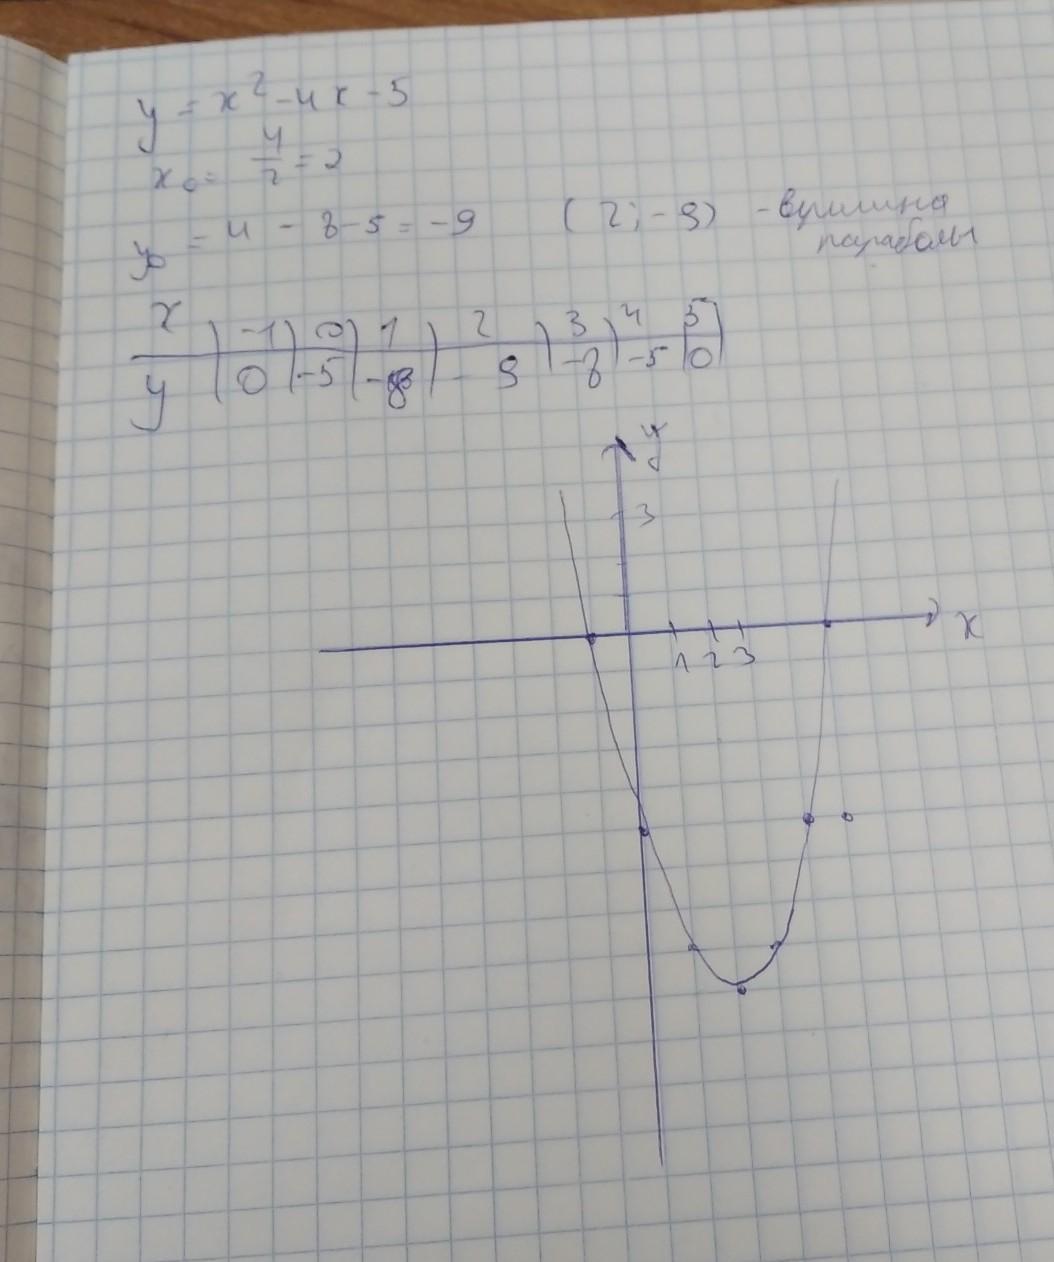 y = x² - 4x - 5
x₀ = 4/2 = 2
y₀ = 4 - 8 - 5 = -9 (2; -9) - вершина
параболы
x | -1 | 0 | 1 | 2 | 3 | 4 | 5 |
y | 0 | -5 | -8 | -9 | -8 | -5 | 0 |
y
3
x
1 2 3